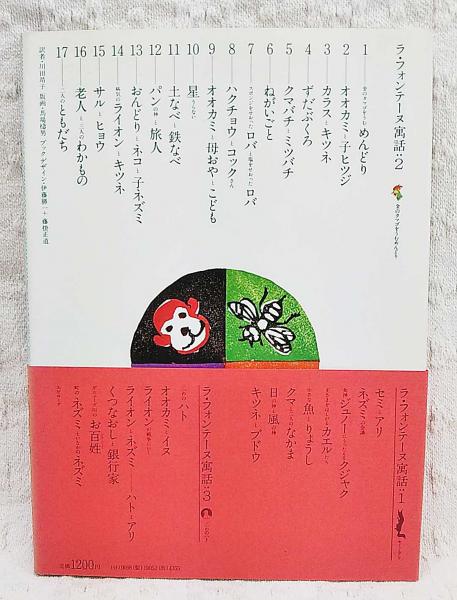 ラ・フォンテーヌ寓話：2
金のタマゴをうむめんどり
1 金のタマゴをうむめんどり
2 オオカミと子ヒツジ
3 カラスとキツネ
4 ずだぶくろ
5 クマバチとミツバチ
6 ねがいごと
7 スポンジをせおったロバと塩をせおったロバ
8 ハクチョウとコックさん
9 オオカミと母おやとこども
10 星うらない
11 土なべと鉄なべ
12 パンの神と旅人
13 おんどりとネコと子ネズミ
14 病気のライオンとキツネ
15 サルとヒョウ
16 老人と三人のわかもの
17 二人のともだち
ラ・フォンテーヌ寓話：1
セミとアリ
ネズミの会議
女神ジュノーにうったえたクジャク
王さまをほしがるカエルたち
小さな魚とりょうし
クマと二人のなかま
日の神と風の神
キツネとブドウ
ラ・フォンテーヌ寓話：3
二わのハト
オオカミとイヌ
ライオンの戦争じたく
ライオンとネズミ——ハトとアリ
くつなおしと銀行家
お百姓
町のネズミといなかのネズミ
定価1200円